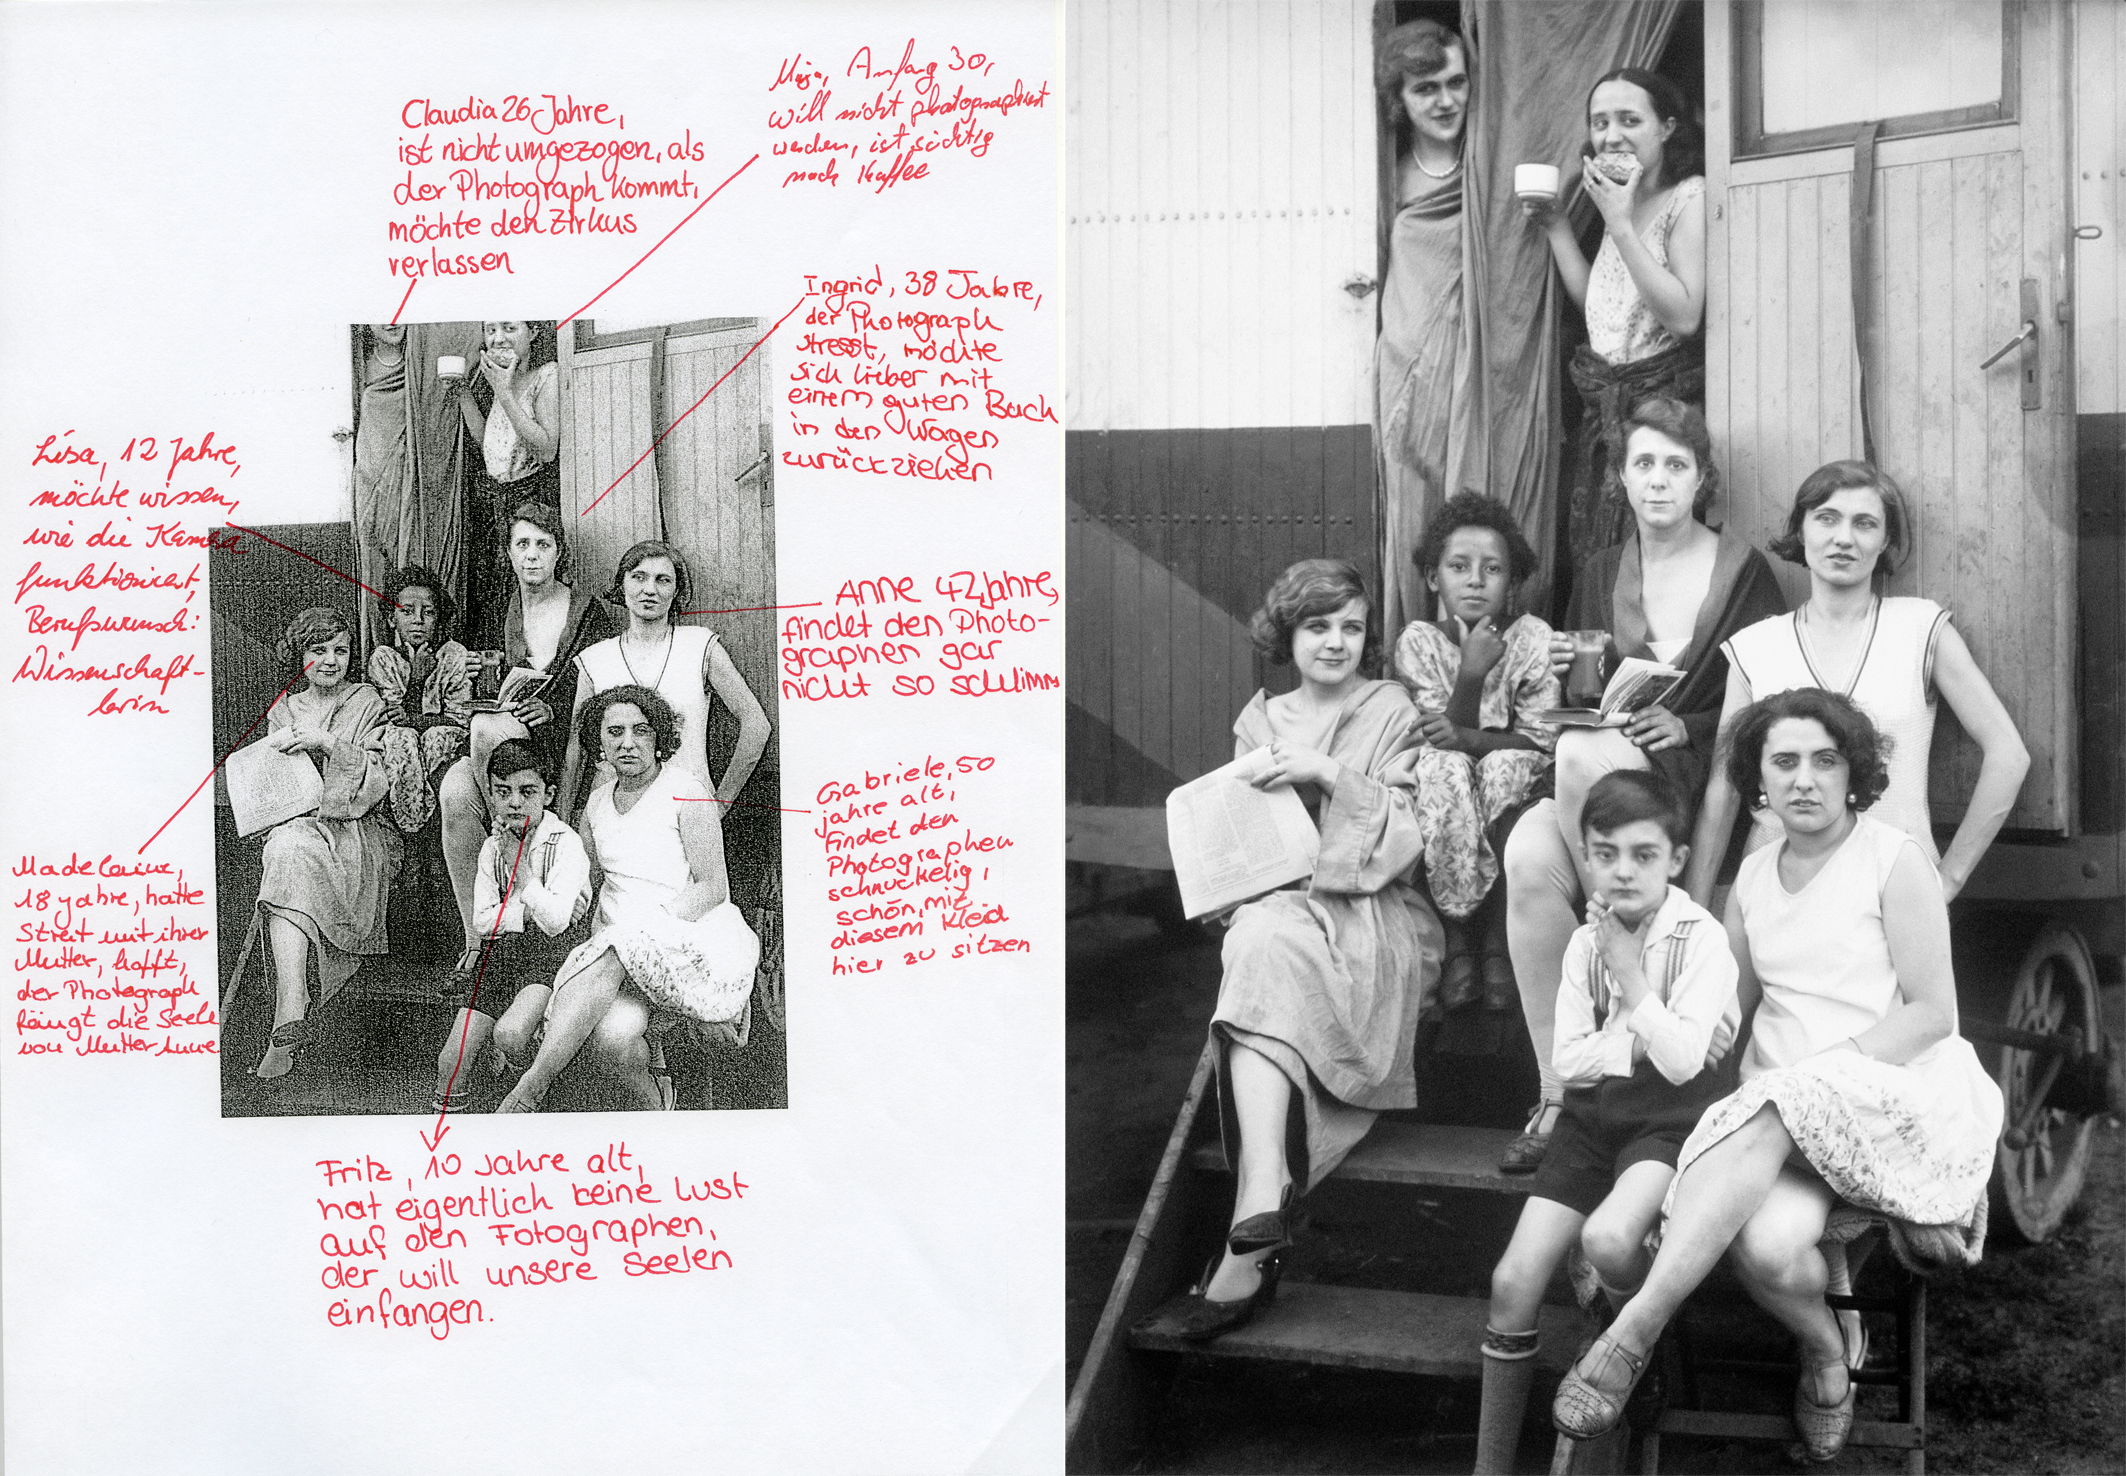 Claudia 26 Jahre,
ist nicht umgezogen, als
der Photograph kommt,
möchte den Zirkus
verlassen
Anfang 30,
will nicht photographiert
werden, ist süchtig
nach Kaffee
Ingrid, 38 Jahre,
der Photograph
stresst, möchte
sich lieber mit
einem guten Buch
in den Wagen
zurückziehen
Lisa, 12 Jahre,
möchte wissen,
wie die Kamera
funktioniert,
Berufswunsch:
Wissenschaft-
lerin
Anne 42 Jahre,
findet den Photo-
graphen gar
nicht so schlimm
Gabriele, 50
jahre alt,
findet den
Photographen
schnuckelig,
schön, mit
diesem Kleid
hier zu sitzen
18 Jahre, hatte
Streit mit ihrer
Mutter, hofft,
der Photograph
fängt die Seele
von Mutter
Fritz, 10 Jahre alt,
hat eigentlich keine Lust
auf den Fotographen,
der will unsere Seelen
einfangen.